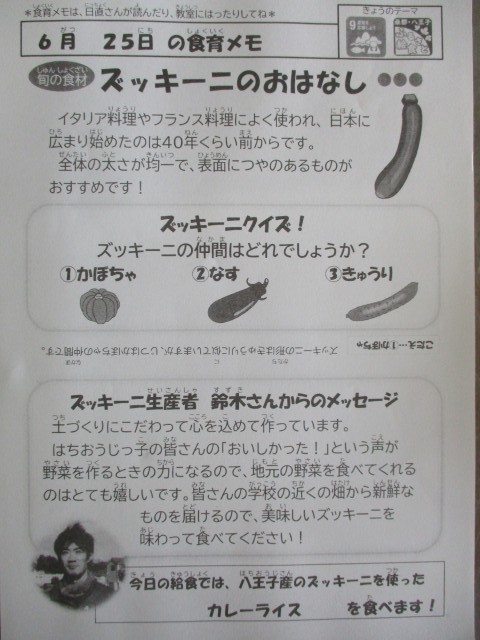 ＊食育メモは、日直さんが読んだり、教室にはったりしてね＊
きょうのテーマ
6月 25日 の食育メモ
旬の食材 ズッキーニのおはなし
イタリア料理やフランス料理によく使われ、日本に
広まり始めたのは40年くらい前からです。
全体の太さが均一で、表面につやのあるものが
おすすめです！
ズッキーニクイズ！
ズッキーニの仲間はどれでしょうか？
①かぼちゃ ②なす ③きゅうり
こたえ…①かぼちゃ
ズッキーニの形はきゅうりに似ていますが、じつはかぼちゃの仲間です。
ズッキーニ生産者 鈴木さんからのメッセージ
土づくりにこだわって心を込めて作っています。
はちおうじっ子の皆さんの「おいしかった！」という声が
野菜を作るときの力になるので、地元の野菜を食べてくれる
のはとても嬉しいです。皆さんの学校の近くの畑から新鮮な
ものを届けるので、美味しいズッキーニを
味わって食べてください！
今日の給食では、八王子産のズッキーニを使った
カレーライス を食べます！